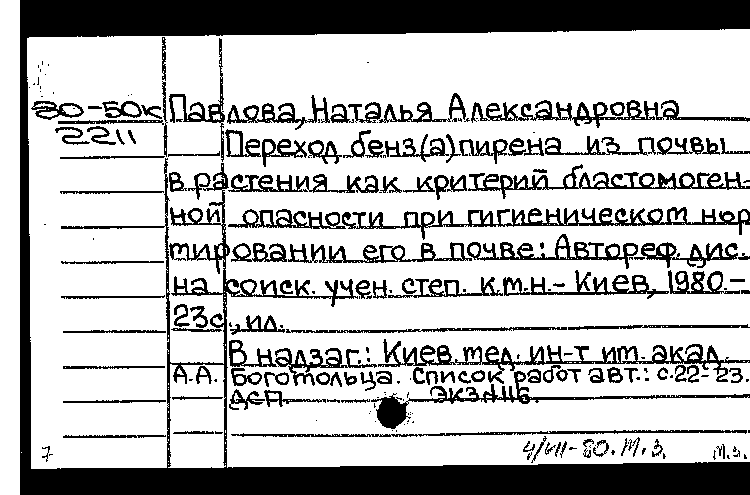 80-50к Павлова, Наталья Александровна
2211
Переход бенз(а)пирена из почвы
в растения как критерий бластомоген-
ной опасности при гигиеническом нор
мировании его в почве: Автореф. дис.
на соиск. учен. степ. к.м.н.- Киев, 1980.-
23с., ил.
В надзаг.: Киев. мед. ин-т им. акад.
А.А. Богомольца. Список работ авт.: с.22-23.
ДСП. Экз.№116.
7 4/VII-80. М.З. М.З.